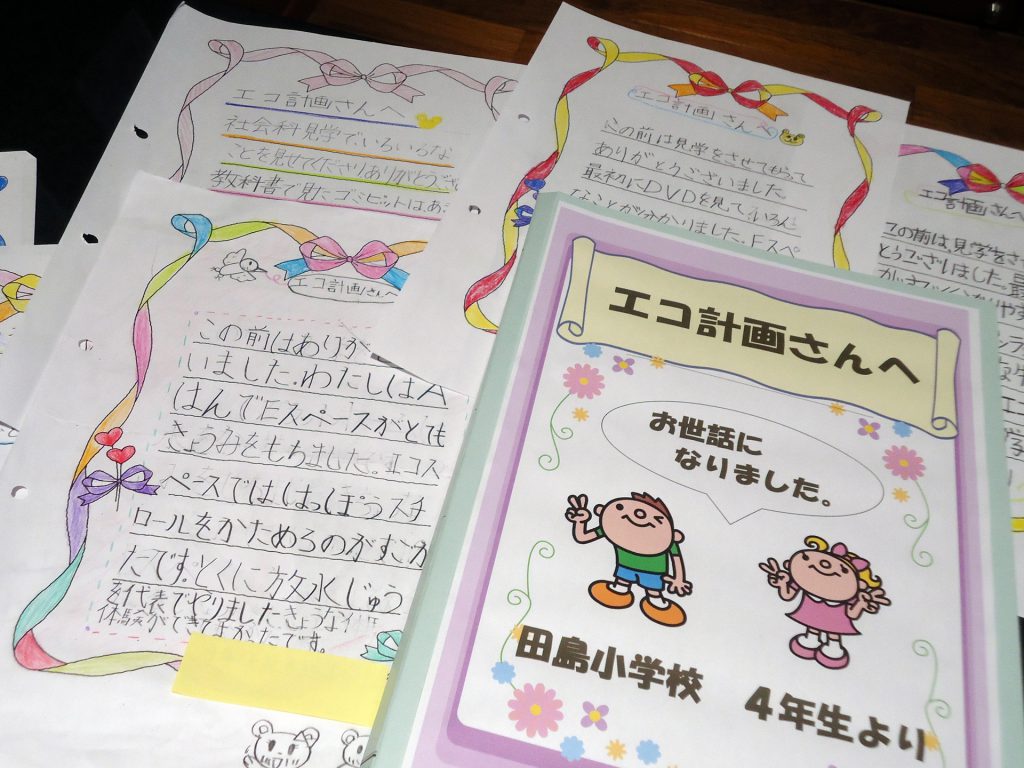 エコ計画さんへ
社会科見学で、いろいろな
ことを見せてくださりありがとうござ
教科書で見たゴミピットは、
エコ計画さんへ
この前は見学をさせてもらって
ありがとうございました。
最初にDVDを見て、いろん
なことが分かりました。Eスペ
エコ計画さんへ
この前は、見学をさ
とうございました。
エコ計画さんへ
この前はありが
いました。わたしはA
はんでEスペースがとても
きょうみをもちました。エコス
ペースでははっぽうスチ
ロールをかためるのがすごか
たです。とくに放水じゅう
を代表でやりました。きちょうな
体験ができてよかったです。
エコ計画さんへ
お世話に
なりました。
田島小学校 4年生より